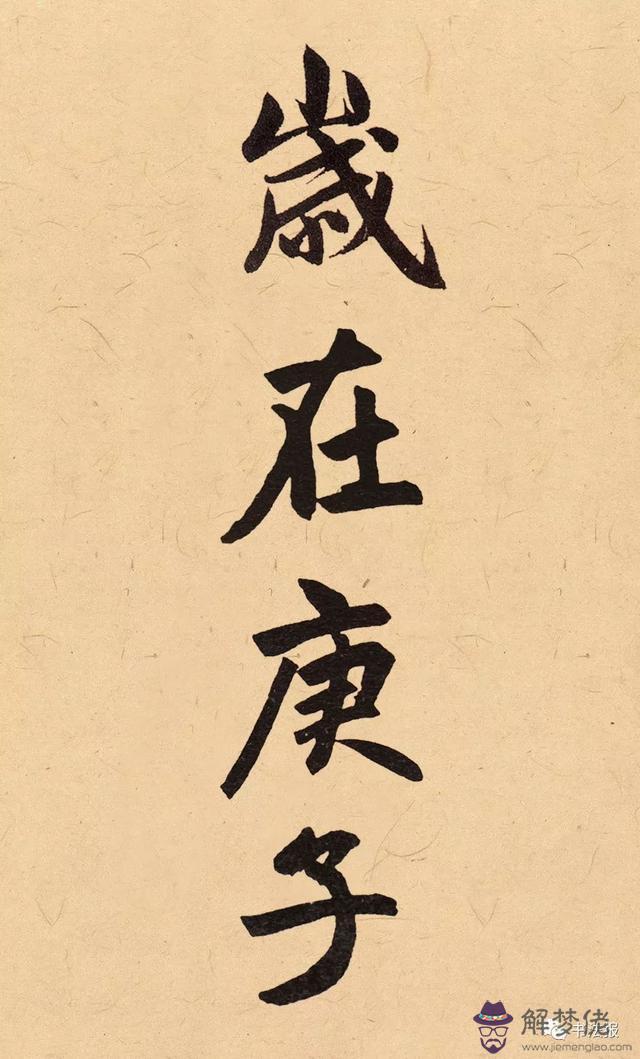 歲在庚子
解梦佬
www.jiemenglao.com
书法报